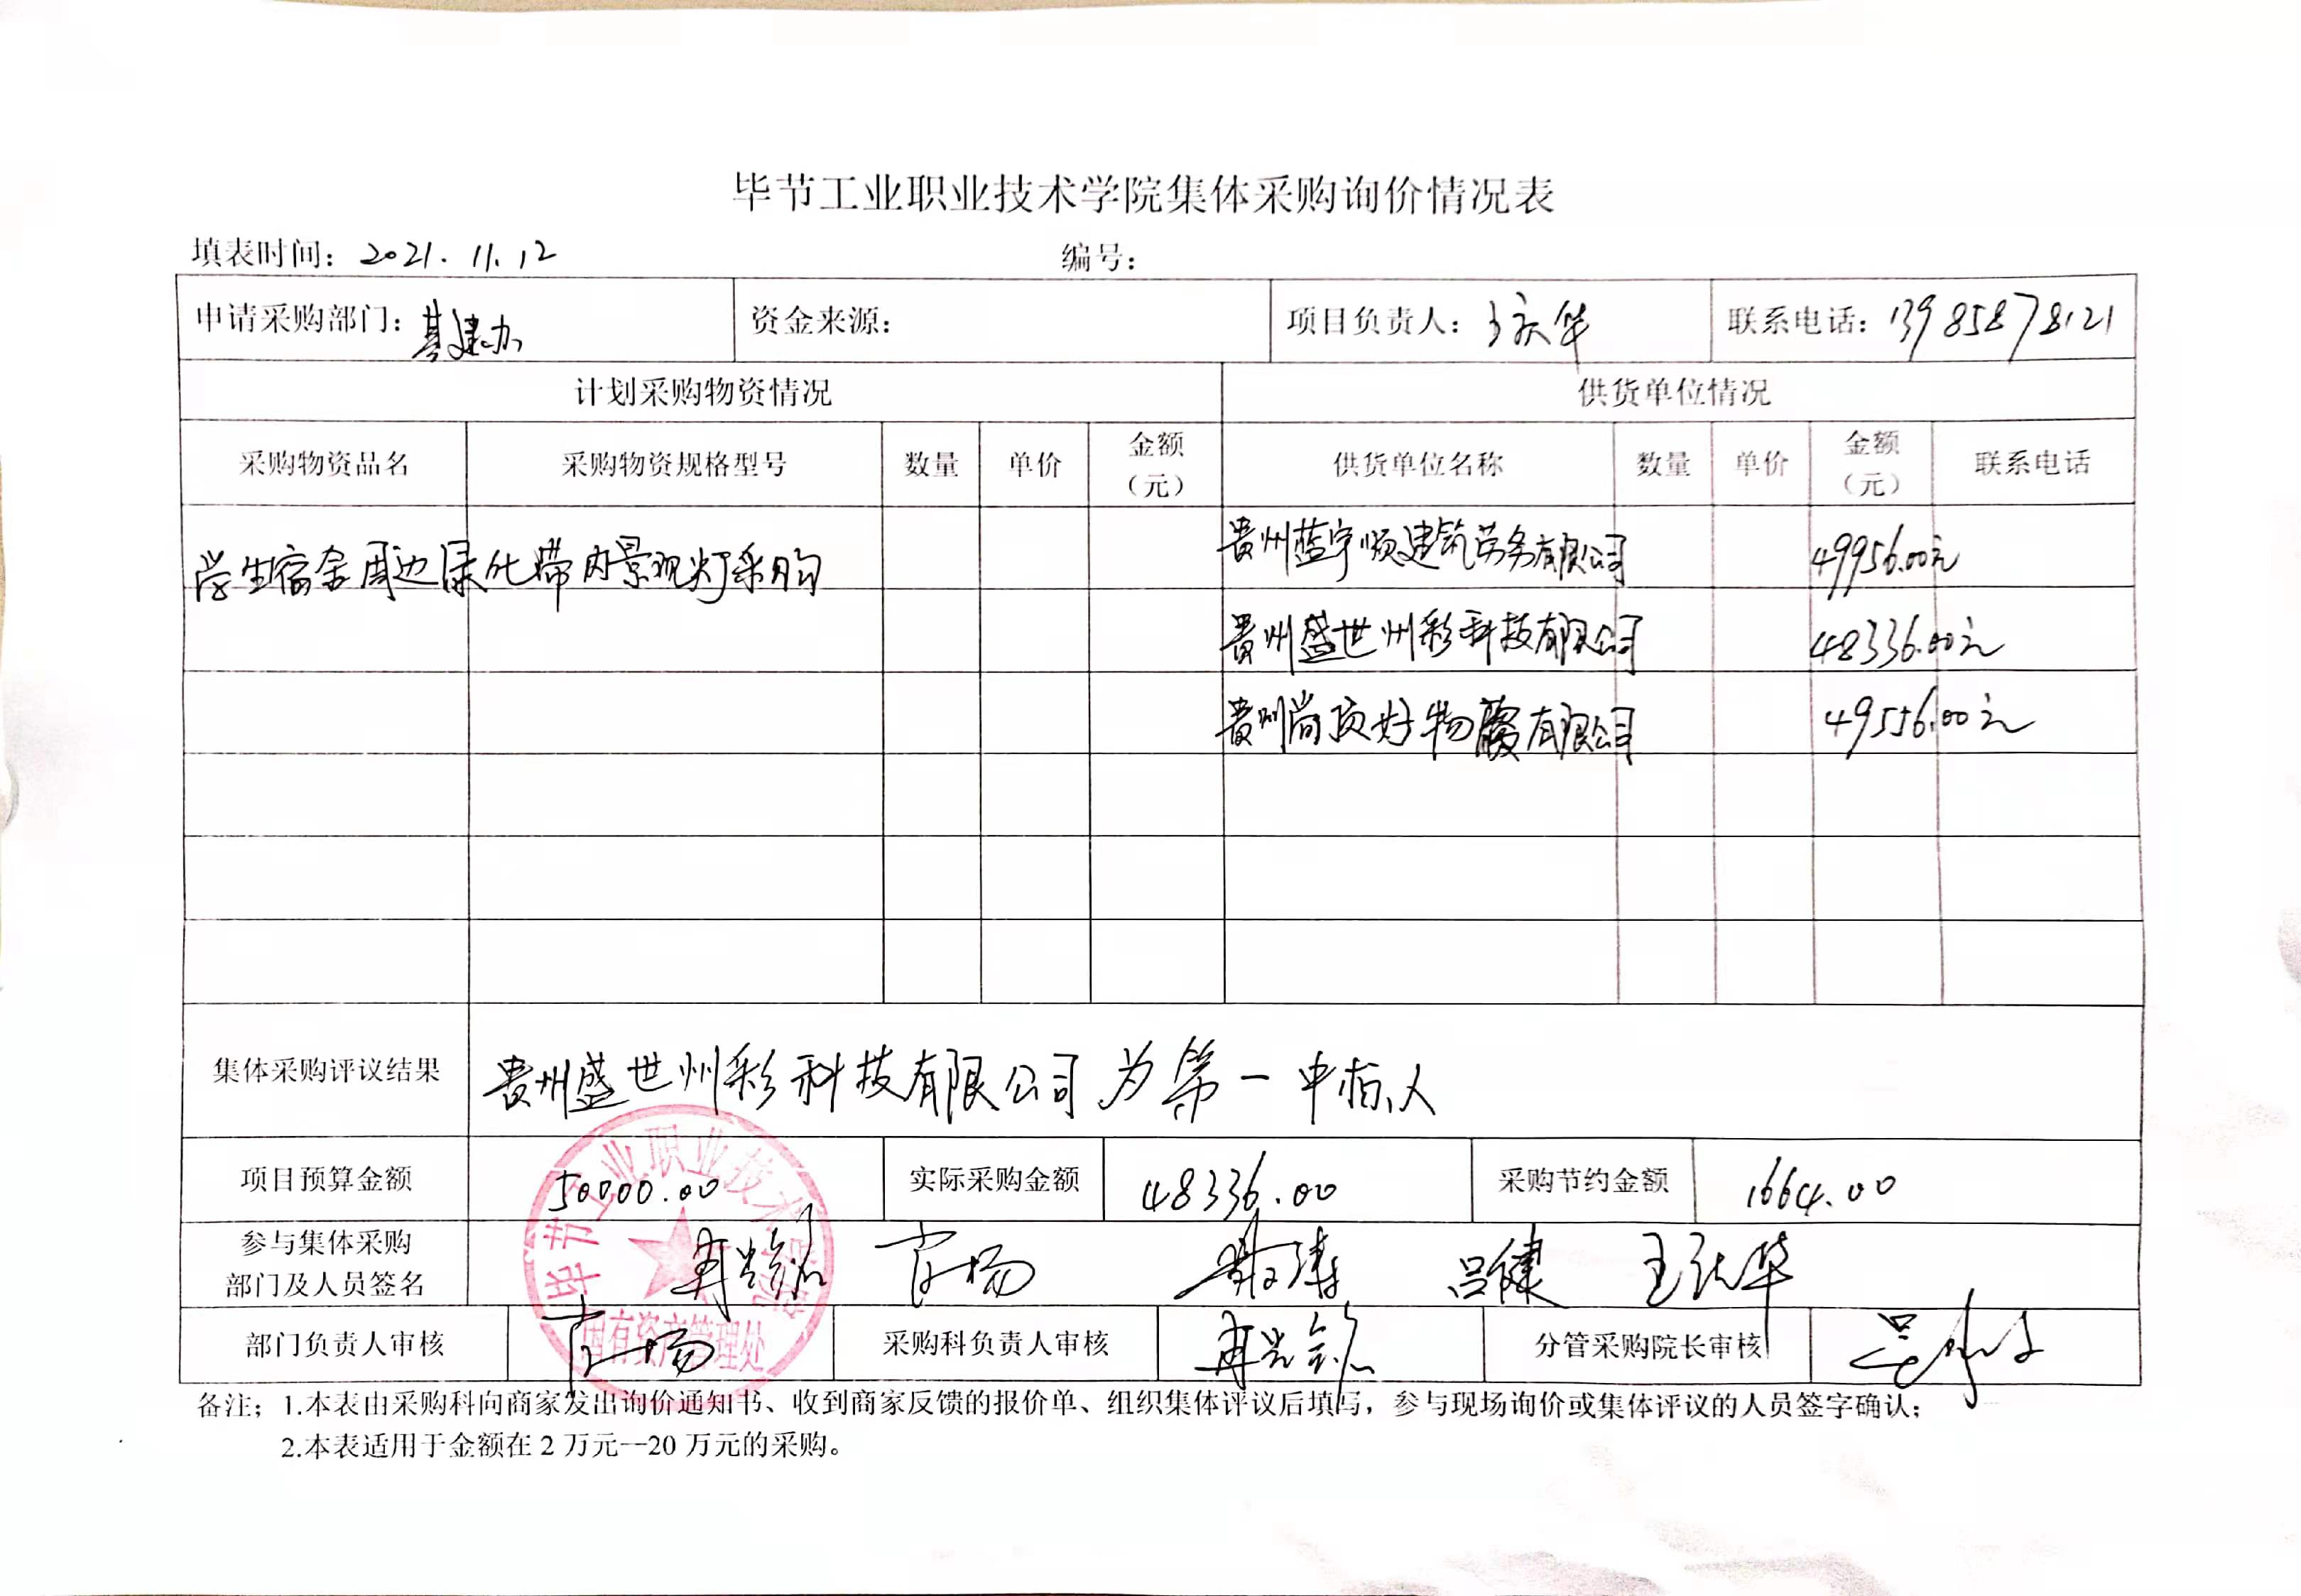 毕节工业职业技术学院集体采购询价情况表
填表时间：2021.11.12 编号：
申请采购部门：基建办 资金来源： 项目负责人：王庆华 联系电话：13985878121
计划采购物资情况 供货单位情况
采购物资品名 采购物资规格型号 数量 单价 金额（元） 供货单位名称 数量 单价 金额（元） 联系电话
学生宿舍周边绿化带内景观灯采购 贵州蓝宇顺建筑劳务有限公司 49956.00元
贵州盛世州彩科技有限公司 48336.00元
贵州尚顶好物 有限公司 49556.00元
集体采购评议结果 贵州盛世州彩科技有限公司为第一中标人
项目预算金额 50000.00 实际采购金额 48336.00 采购节约金额 1664.00
参与集体采购部门及人员签名 吕健 王庆华
部门负责人审核 采购科负责人审核 分管采购院长审核
毕节工业职业技术学院
国有资产管理处
备注；1.本表由采购科向商家发出询价通知书、收到商家反馈的报价单、组织集体评议后填写，参与现场询价或集体评议的人员签字确认；
2.本表适用于金额在 2 万元--20 万元的采购。